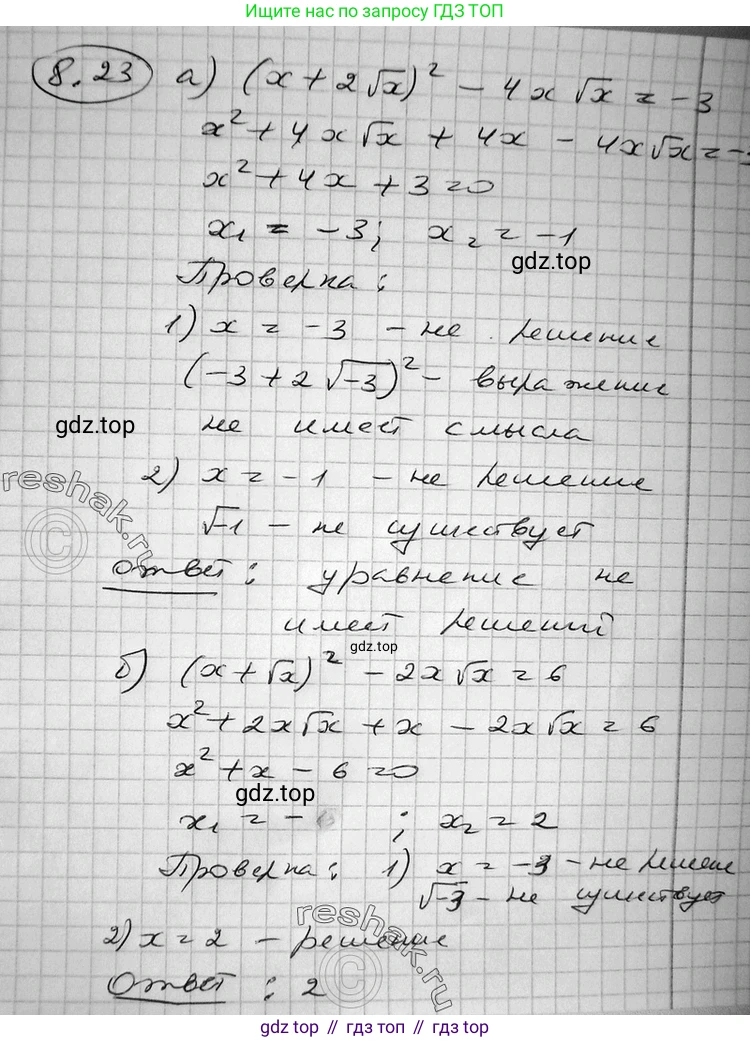 Ищите нас по запросу ГДЗ ТОП
8.23 а) (x + 2√x)² - 4x√x = -3
x² + 4x√x + 4x - 4x√x = -3
x² + 4x + 3 = 0
x₁ = -3; x₂ = -1
gdz.top
Проверка:
1) x = -3 - не решение
(-3 + 2√-3)² - выражение
gdz.top
не имеет смысла
reshak.ru
2) x = -1 - не решение
√-1 - не существует
Ответ: уравнение не
имеет решений
gdz.top
б) (x + √x)² - 2x√x = 6
x² + 2x√x + x - 2x√x = 6
x² + x - 6 = 0
gdz.top
x₁ = - ; x₂ = 2
Проверка: 1) x = -3 - не решение
√-3 - не существует
reshak.ru
2) x = 2 - решение
Ответ: 2
gdz.top // гдз топ // gdz.top